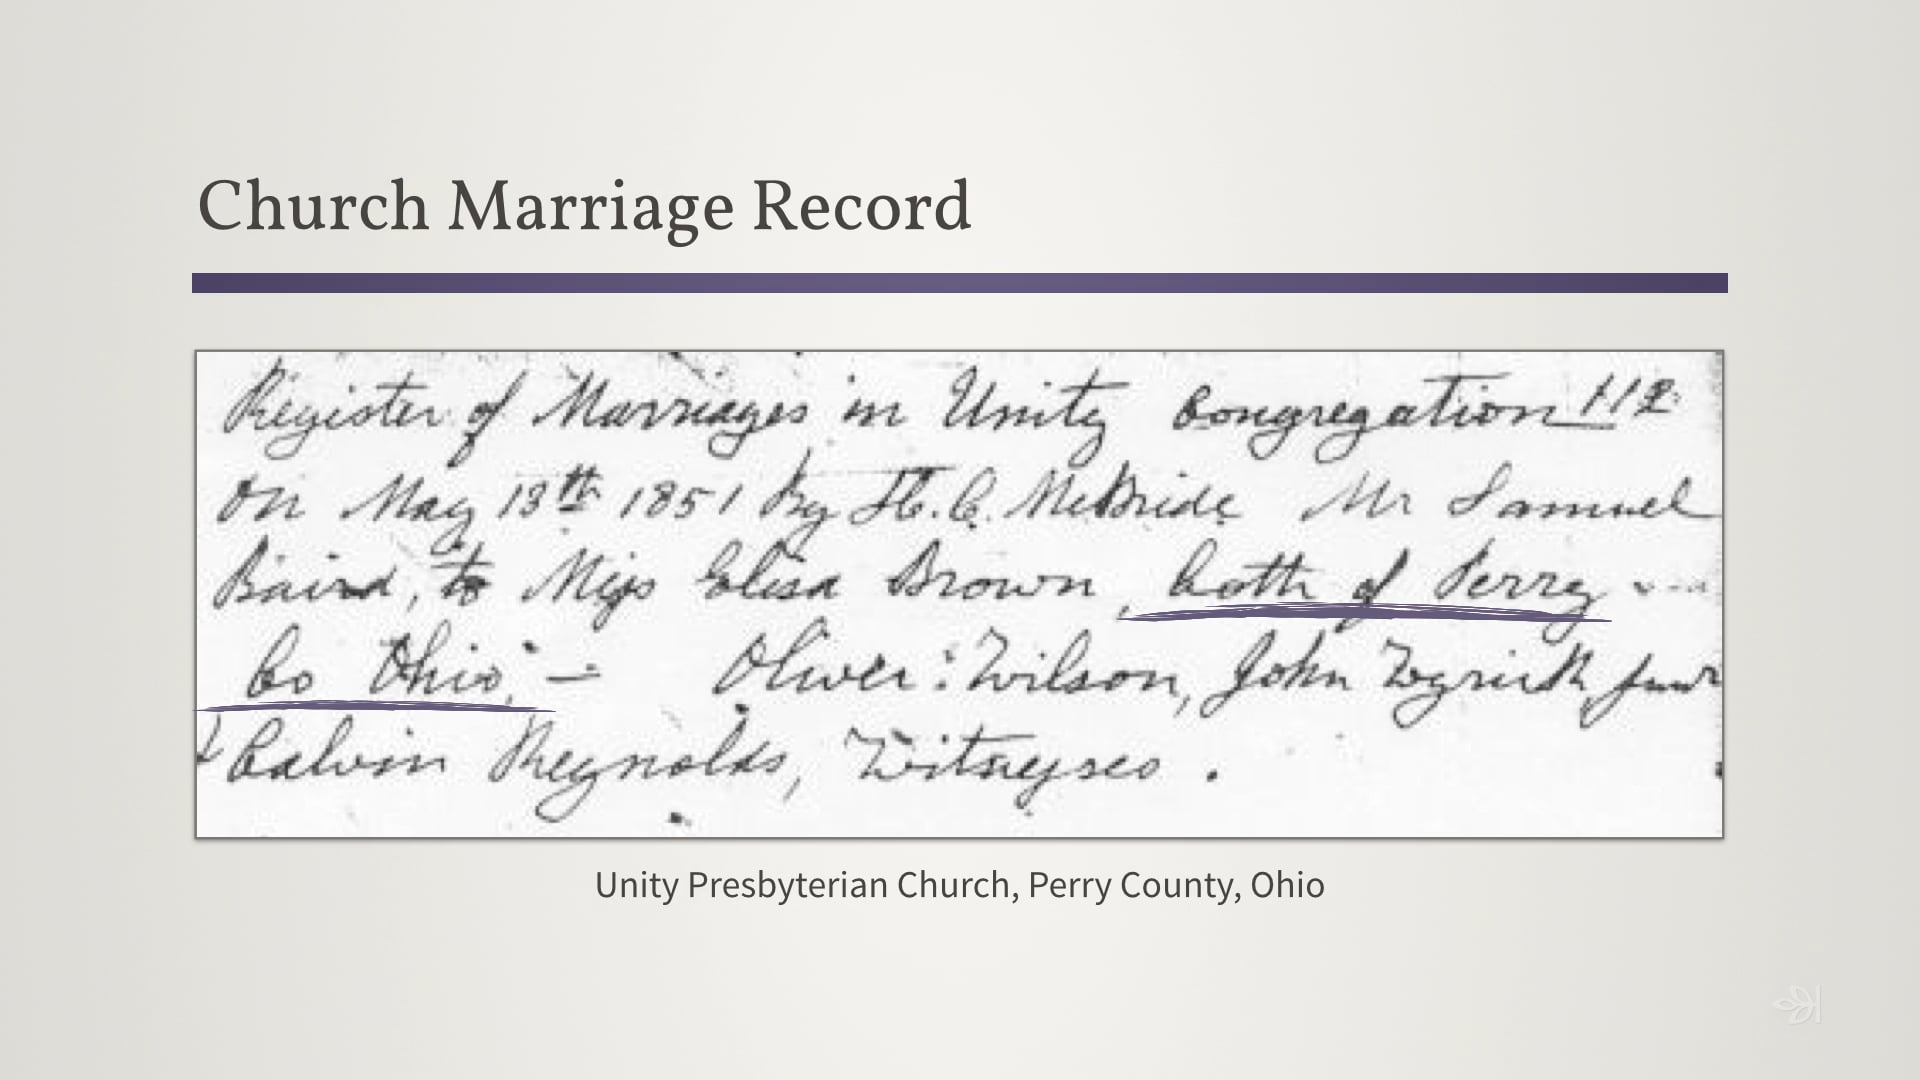 Church Marriage Record
Register of Marriages in Unity Congregation 112
On May 13th 1851 By H. C. McBride Mr Samuel
Baird, to Miss Elisa Brown, both of Perry
Co Ohio, — Oliver Wilson, John
& Calvin Reynolds, Witnesses.
Unity Presbyterian Church, Perry County, Ohio